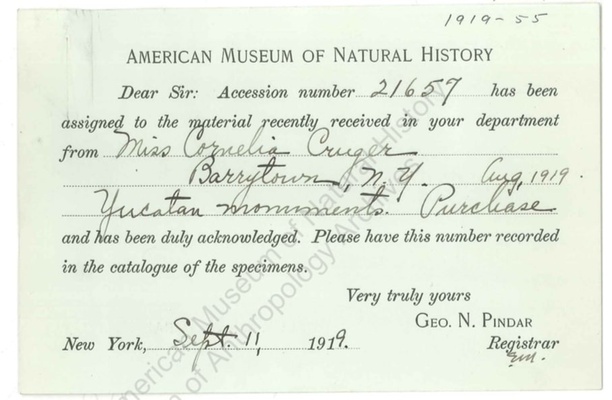 1919-55
AMERICAN MUSEUM OF NATURAL HISTORY
Dear Sir: Accession number 21657 has been
assigned to the material recently received in your department
from Miss Cornelia Cruger
Barrytown, N.Y. Aug, 1919.
Yucatan monuments. Purchase
and has been duly acknowledged. Please have this number recorded
in the catalogue of the specimens.
Very truly yours
GEO. N. PINDAR
New York, Sept. 11, 1919. Registrar
American Museum of Natural History
of Anthropology Archives